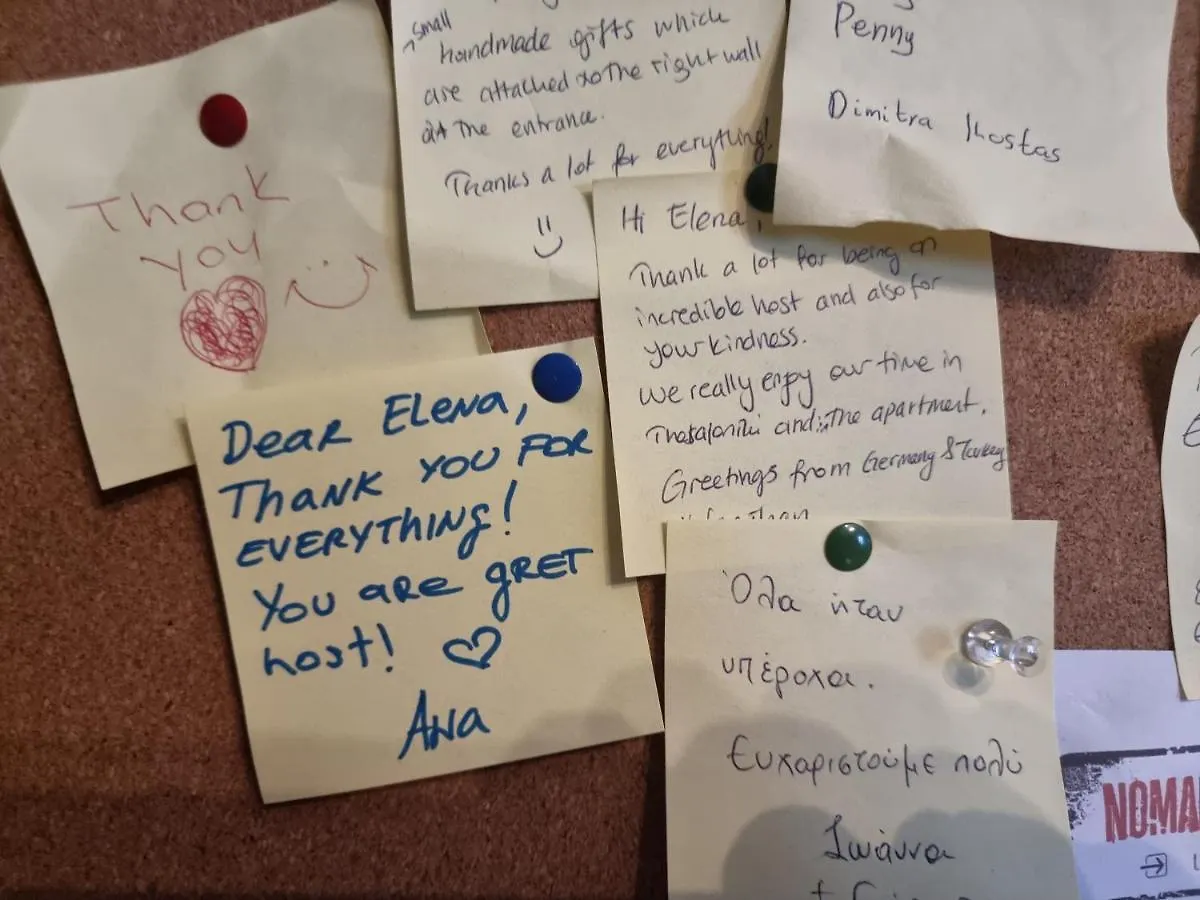 Thank
you
small
handmade gifts which
are attached to the right wall
at the entrance.
Thanks a lot for everything!
Penny
Dimitra Kostas
Hi Elena,
Thank a lot for being an
incredible host and also for
your kindness.
We really enjoy our time in
and the apartment.
Greetings from Germany & Turkey
DEAR ELENA,
THANK YOU FOR
EVERYTHING!
YOU ARE GRET
host!
Ana
Όλα ήταν
υπέροχα.
Ευχαριστούμε πολύ
Ιωάννα
NOMA